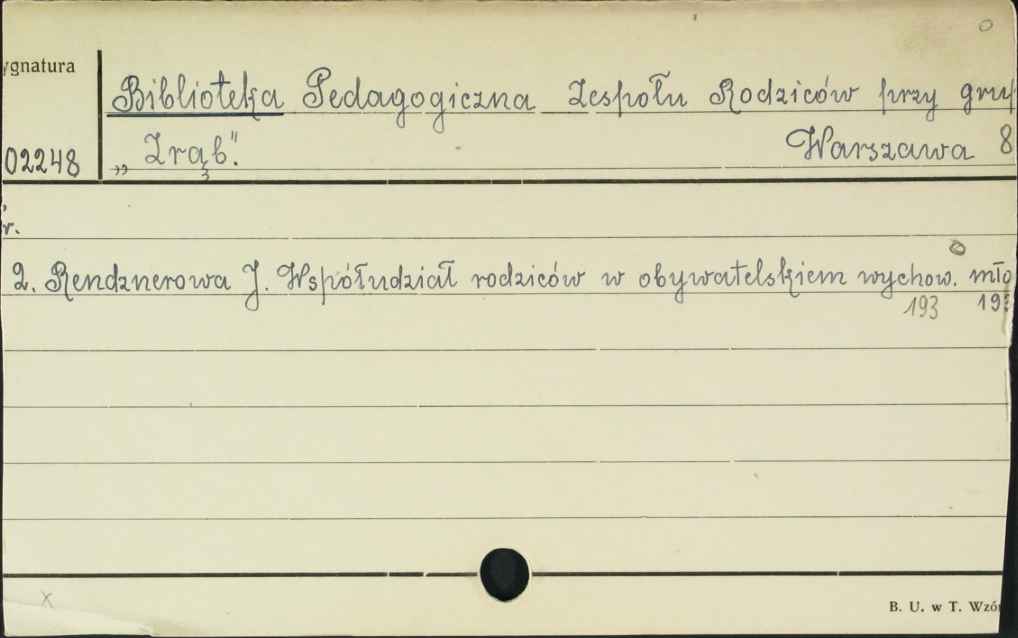 ygnatura
Biblioteka Pedagogiczna Zespołu Rodziców przy grup
02248 „Zrąb". Warszawa 8
r.
2. Rendznerowa J. Współudział rodziców w obywatelskiem wychow. mło
193 193
x
B. U. w T. Wzór